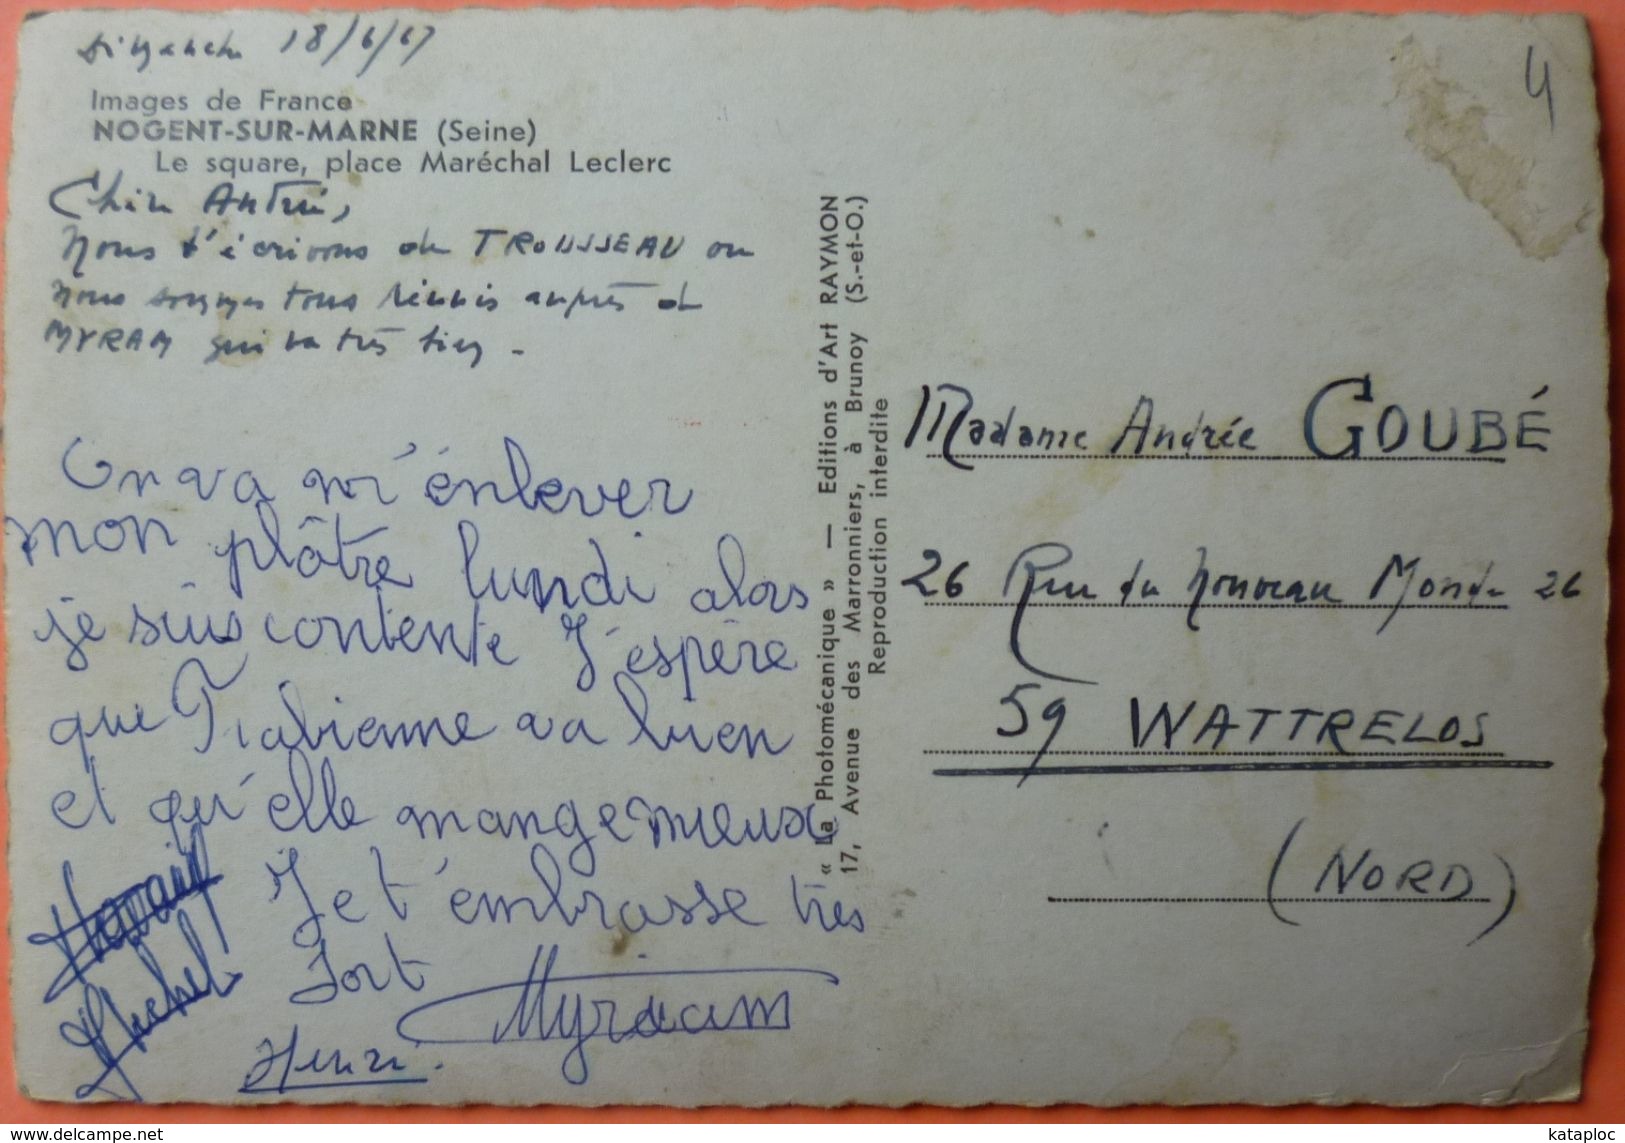 Dimanche 18/6/67
Images de France
NOGENT-SUR-MARNE (Seine)
Le square, place Maréchal Leclerc
Chère Andrée,
Nous t'écrivons de TROUSSEAU ou
nous sommes tous réunis auprès de
MYRAM qui va très bien -
On va m'énlever
mon plâtre lundi alors
je suis contente J'espère
que Fabienne va bien
et qu'elle mange mieux
Je t'émbrasse très
Fort
Myriam
Michel
Henri.
« La Photomécanique » — Editions d'Art RAYMON
17, Avenue des Marronniers, à Brunoy (S.-et-O.)
Reproduction interdite
4
Madame Andrée GOUBÉ
26 Rue du Nouveau Monde 26
59 WATTRELOS
(NORD)
kataploc
www.delcampe.net